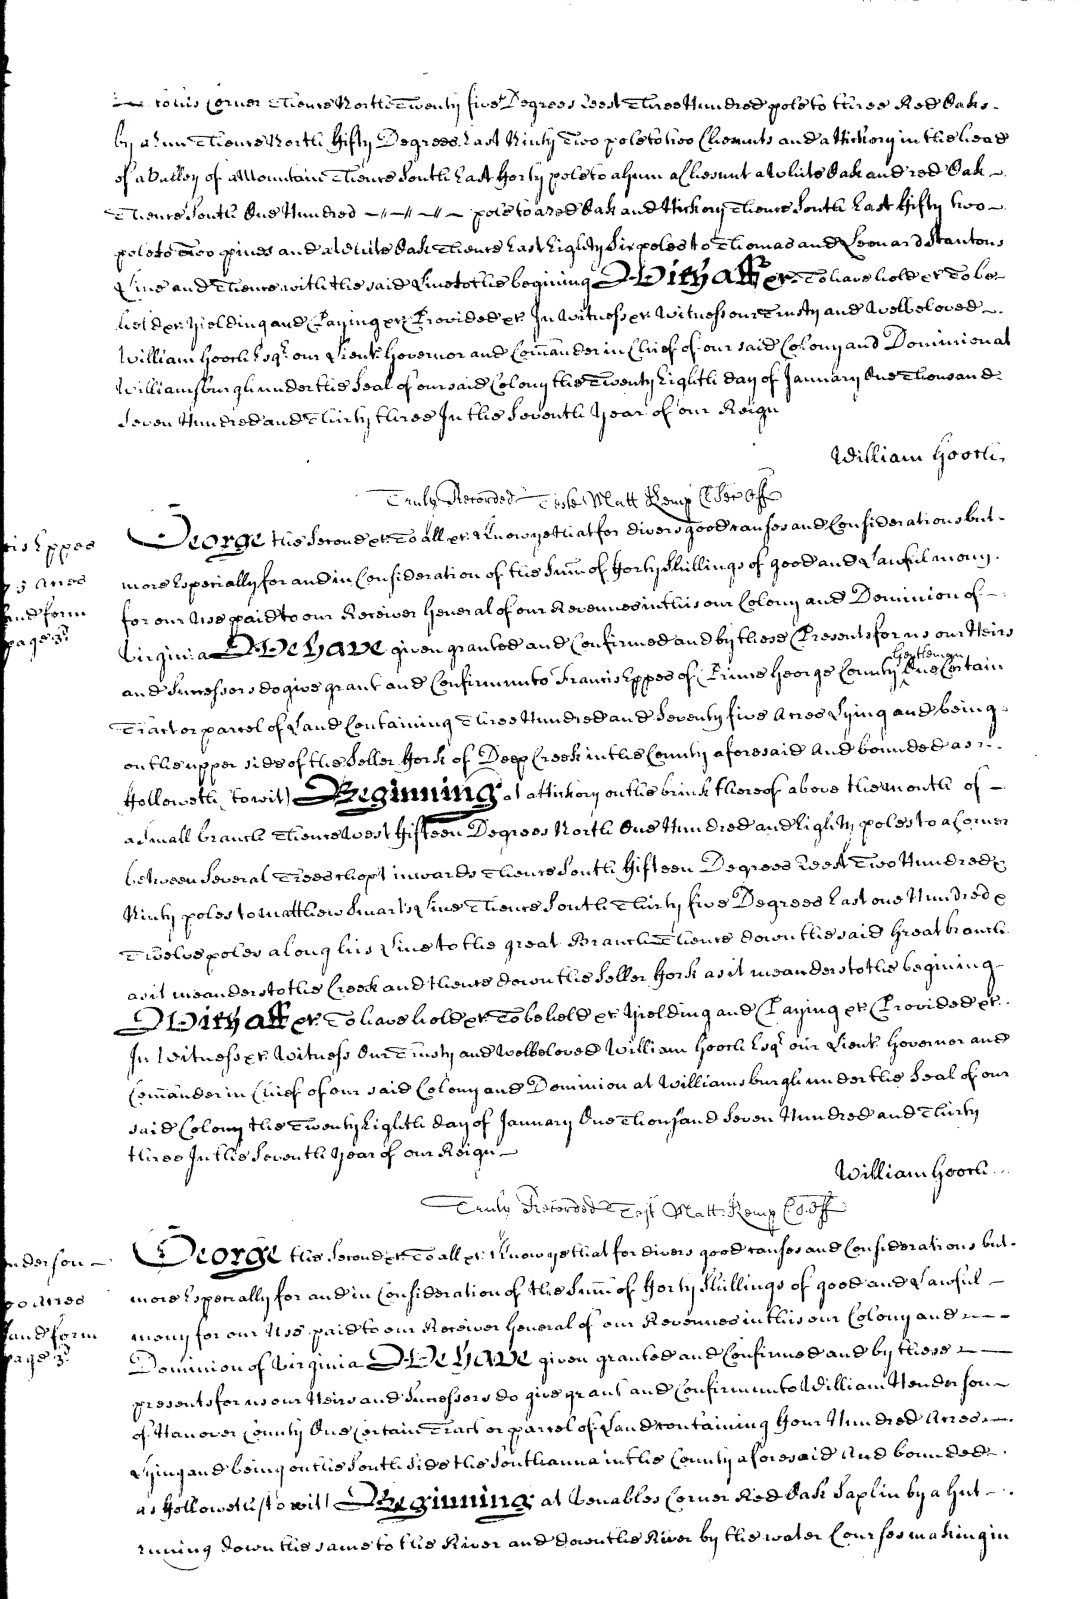 to his Corner Thence North Twenty five Degrees West Three Hundred pole to three Red Oaks
by a Run Thence North Fifty Degrees East Ninty Two pole to two Chesnuts and a Hickory in the head
of a Valley of a Mountain Thence South East Forty pole to a Gum a Chesnut a White Oak and red Oak
Thence South One Hundred — " — " — " — pole to a red Oak and Hickory Thence South East Fifty two
pole to Two pines and a White Oak Thence East Eighty Six poles to Thomas and Leonard Stantons
Line and Thence with the said Line to the begining With all &c. To have hold &c. To be
held &c. Yielding and Paying &c. Provided &c. In Witness &c. Witness our Trusty and Welbeloved
William Gooch Esqr. our Lieut. Governor and Com̄ander in Chief of our said Colony and Dominion at
Williamsburgh under the Seal of our said Colony the Twenty Eighth day of January One Thousand
Seven Hundred and Thirty three In the Seventh Year of our Reign
William Gooch
Truly Recorded Teste Matt Kemp Cl Sec Off
George the Second &c. To all &c. Know ye that for divers good causes and Considerations but
more Especially for and in Consideration of the Sum̄ of Forty Shillings of good and Lawful mony
for our Use paid to our Receiver General of our Revenues in this our Colony and Dominion of
Virginia We have given granted and Confirmed and by these Presents for us our Heirs
and Successors do give grant and Confirm unto Francis Eppes of Prince George County Gentleman One Certain
Tract or parcel of Land Containing Three Hundred and Seventy five Acres Lying and being
on the upper side of the Seller Fork of Deep Creek in the County aforesaid And bounded as
Followeth (to wit) Beginning at a Hickory on the brink thereof above the mouth of
a Small branch Thence West Fifteen Degrees North One Hundred and Eighty poles to a Corner
between Several Trees chopt inwards Thence South Fifteen Degrees West Two Hundred &
Ninty poles to Matthew Smart's Line Thence South Thirty five Degrees East one Hundred &
Twelve poles along his Line to the great Branch Thence down the said Great branch
as it meanders to the Creek and thence down the Seller Fork as it meanders to the begining
With all &c. To have hold &c. To be held &c. Yielding and Paying &c. Provided &c.
In Witness &c. Witness Our Trusty and Welbeloved William Gooch Esqr. our Lieut. Governor and
Com̄ander in Chief of our said Colony and Dominion at Williamsburgh under the Seal of our
said Colony the Twenty Eighth day of January One Thousand Seven Hundred and Thirty
three In the Seventh Year of our Reign
William Gooch
Truly Recorded Test Matt: Kemp C S. Off
George the Second &c. To all &c. Know ye that for divers good causes and Considerations but
more Especially for and in Consideration of the Sum̄ of Forty Shillings of good and Lawful
mony for our Use paid to our Receiver General of our Revenues in this our Colony and
Dominion of Virginia We have given granted and Confirmed and by these
presents for us our Heirs and Successors do give grant and Confirm unto William Henderson
of Hanover County One Certain Tract or parcel of Land containing Four Hundred Acres
Lying and being on the South Side the Southanna in the County aforesaid And bounded
as Followeth (to wit) Beginning at Venables Corner Red Oak Saplin by a Gut
runing down the same to the River and down the River by the water Courses making in
Eppes
Acres
and form
page 3
nderson
Acres
and form
page 3